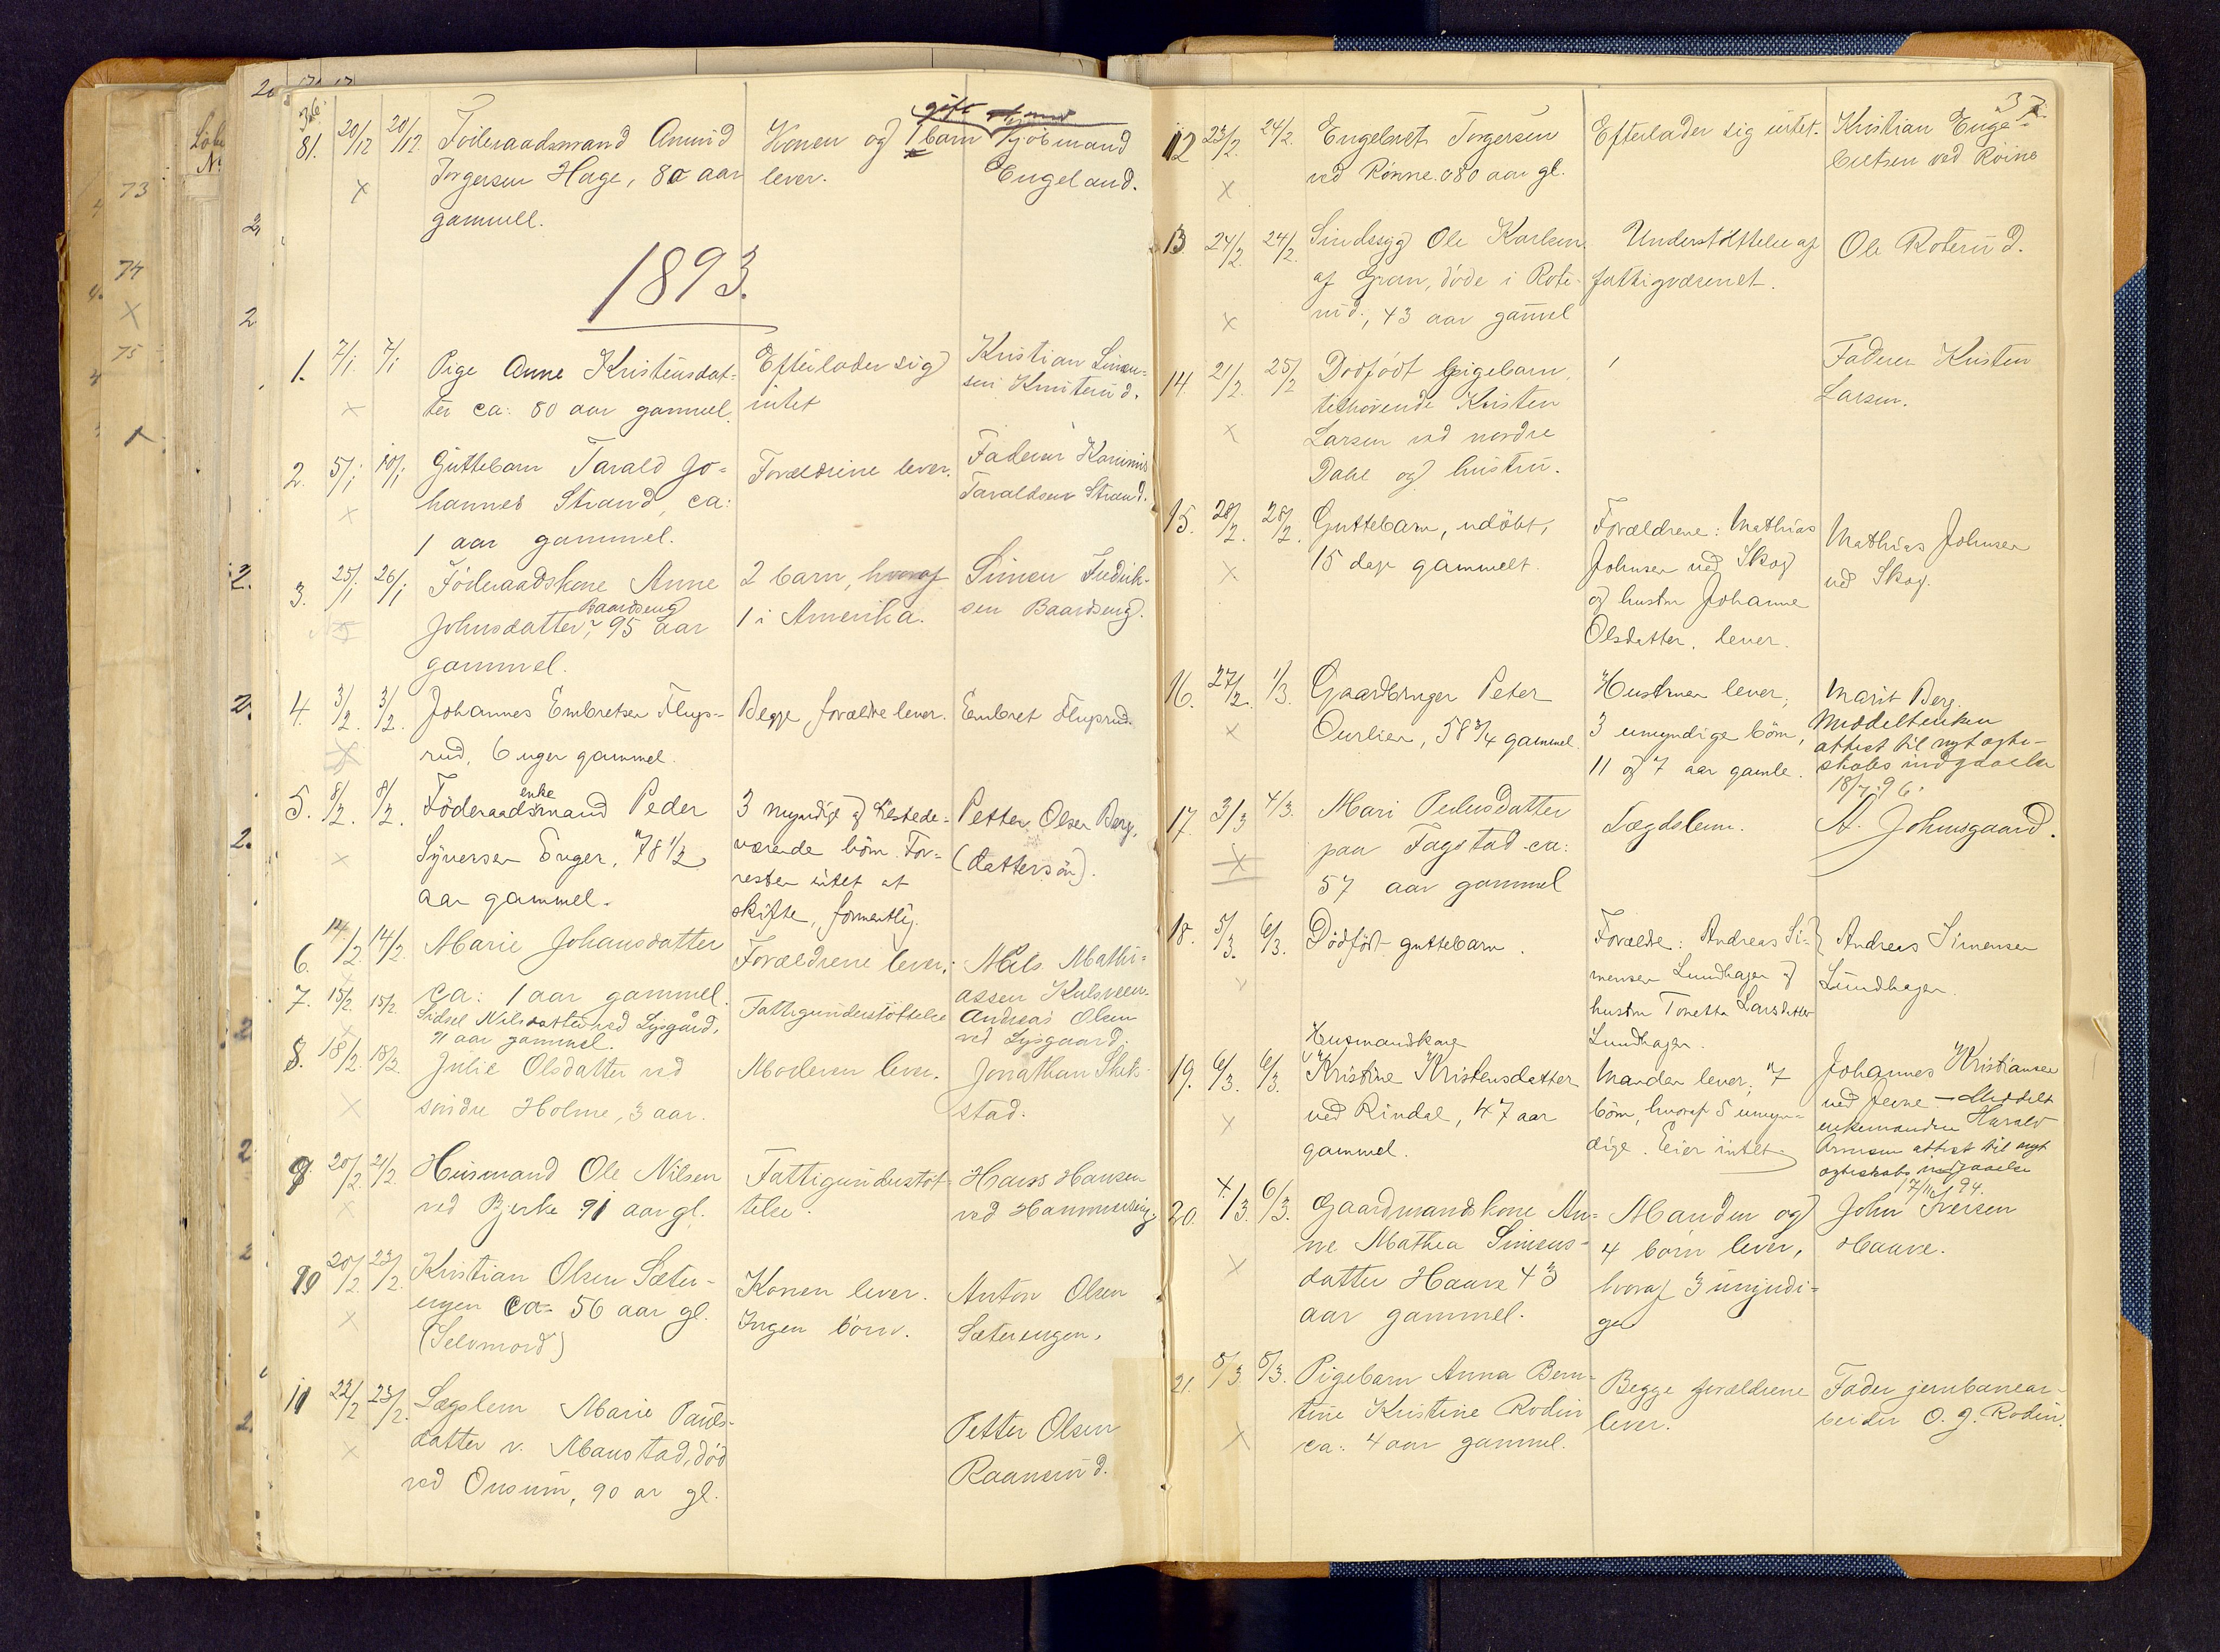 36.
81. 20/12 20/12 Föderaadsmand Amund Konen og 1 barn Kjöbmand
gift
Torgersen Hage, 80 aar lever. Engeland.
gammell.
1893.
1. 7/1 7/1 Pige Anne Kristensdat- Efterlader sig Kristian Simen-
ter ca: 80 aar gammel. intet sen
2. 5/1 10/1 Guttebarn Tarald Jo- Forældrene lever. Faderen
hannes Strand, ca: Taraldsen Strand.
1 aar gammel.
3. 25/1 26/1 Föderaadskone Anne 2 barn, hvoraf Simen Fredrik-
Baardseng
Johnsdatter, 95 aar 1 i Amerika. sen Baardseng.
gammel.
4. 3/2. 3/2. Johannes Embretsen Flugs- Begge forældre lever. Embret Flugsrud.
rud, 6 uger gammel.
5. 8/2. 8/2. Föderaadsmand Peder 3 myndige og tilstede- Petter Olsen Berg.
enke
Syversen Enger, 78 1/2 værende börn. For- (dattersön).
resten intet at
aar gammel. skifte, formentlig.
6. 14/2. 14/2. Marie Johansdatter Forældrene lever. Nils Mathi-
ca: 1 aar gammel. assen Kulsveen
7. 15/2. 15/2. Sidsel Nilsdatter ved Lysgård, Fattigunderstöttelse Andreas Olsen
91 aar gammel. ved Lysgaard.
8. 18/2. 18/2. Julie Olsdatter ved Moderen lever. Jonathan
söndre Holme, 3 aar. stad.
9. 20/2. 21/2. Husmand Ole Nilsen Fattigunderstöt- Hans Hansen
ved Bjerke 91 aar gl. telse. ved
10 20/2. 23/2. Kristian Olsen Sæter- Konen lever. Anton Olsen
engen ca: 56 aar gl. Ingen börn. Sæterengen.
(Selvmord)
11 22/2 23/2. Lægslem Marie Pauls- Petter Olsen
datter v. Maustad, död Raanerud.
ved Onsum, 90 ar gl.
37.
12 23/2. 24/2. Engebret Torgersen Efterlader sig intet. Kristian Enge-
ved Rönne. 80 aar gl. bretsen ved Röine
13 24/2. 24/2. Sindssyg Ole Karlsen Understöttelse af Ole Roterud.
af Gran, döde i Rote- fattigvæsenet.
rud., 43 aar gammel
14. 21/2. 25/2 Dödfödt pigebarn, Faderen Kristen
tilhörende Kristen Larsen.
Larsen ved nordre
Dahl og hustru.
15. 28/2. 28/2. Guttebarn, udöbt, Forældrene: Mathias Mathias Johnsen
15 dage gammelt. Johnsen ved Skog ved Skog.
og hustru Johanne
Olsdatter, lever.
16. 27/2. 1/3. Gaardbruger Peter Hustruen lever, Marit Berg.
Ourlien, 58 3/4 gammel. 3 umyndige börn, Meddelt enken
11 og 7 aar gamle. attest til nyt ægte-
skabs indgaaelse
18/7. 96.
17. 3/3 4/3. Mari Pedersdatter Lægdslem. A. Johnsgaard.
paa Fagstad ca:
57 aar gammel
18. 5/3. 6/3. Dödfödt guttebarn. Forældre: Andreas Si- Andreas Simensen
mensen Lundhagen og Lundhagen.
hustru Tonetta Larsdatter
Lundhagen.
Husmandskone
19. 6/3. 6/3. Kristine Kristensdatter Manden lever, 7 Johannes Kristiansen
ved Rindal, 47 aar börn, hvoraf 5 umyn- ved Jevne - Meddelt
gammel. dige. Eier intet. enkemanden Harald
attest til nyt
ægteskabs indgaaelse
17/11 94.
20. 4/3. 6/3. Gaardmandskone An- Manden og John Iversen
ne Mathea Simens- 4 börn lever, Haave.
datter Haave 43 hvoraf 3 umyndi-
aar gammel. ge
21. 5/3. 8/3. Pigebarn Anna Bern- Begge forældrene Fader jernbanear-
tine Kristine Rodin lever. beider O. J. Rodin.
ca: 4 aar gammel.